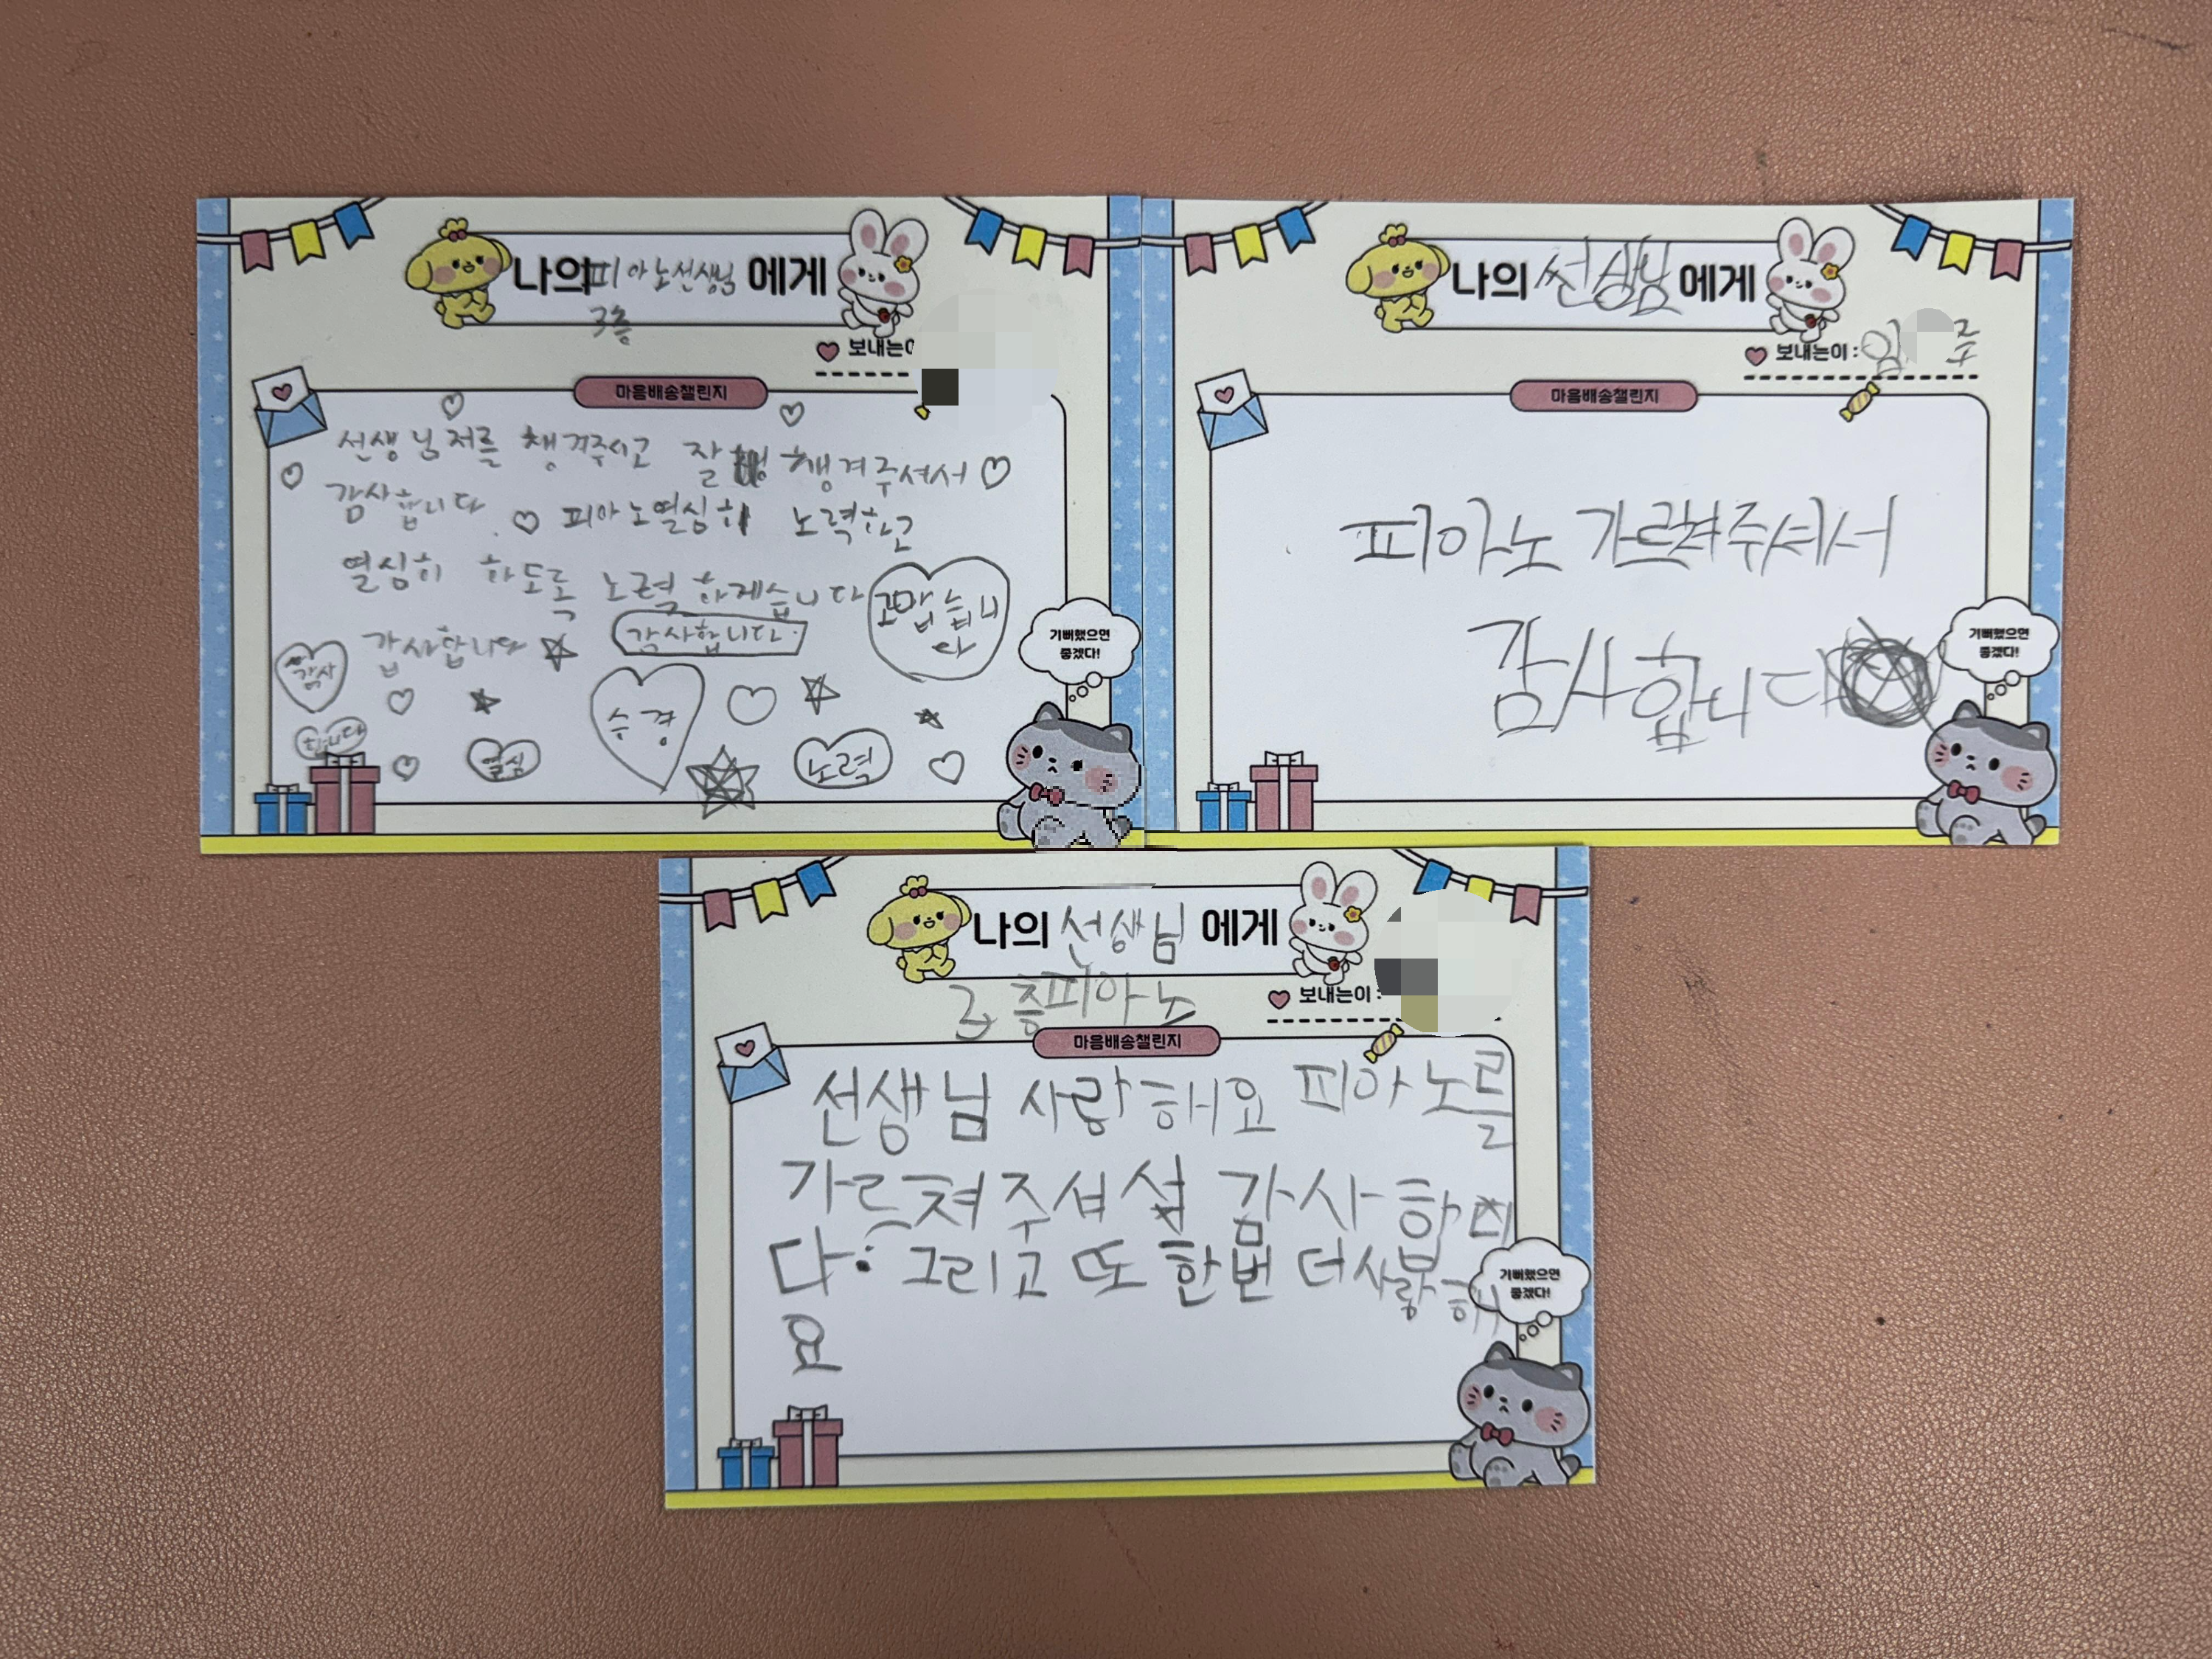 나의 피아노선생님 에게
3층
보내는이
마음배송챌린지
선생님저를 챙겨주시고 잘 챙겨주셔서
감사합니다. 피아노열심히 노력하고
열심히 하도록 노력하게습니다
고맙습니
다
감사합니다
감사합니다.
감사
합니다
열심
승경
노력
기뻐했으면
좋겠다!
나의 선생님 에게
보내는이 : 임 주
마음배송챌린지
피아노 가르쳐주셔서
감사합니다
기뻐했으면
좋겠다!
나의 선생님 에게
3층피아노
보내는이 :
마음배송챌린지
선생님 사랑해요 피아노를
가르쳐주셔서 감사합니
다. 그리고 또 한번 더 사랑해
요
기뻐했으면
좋겠다!